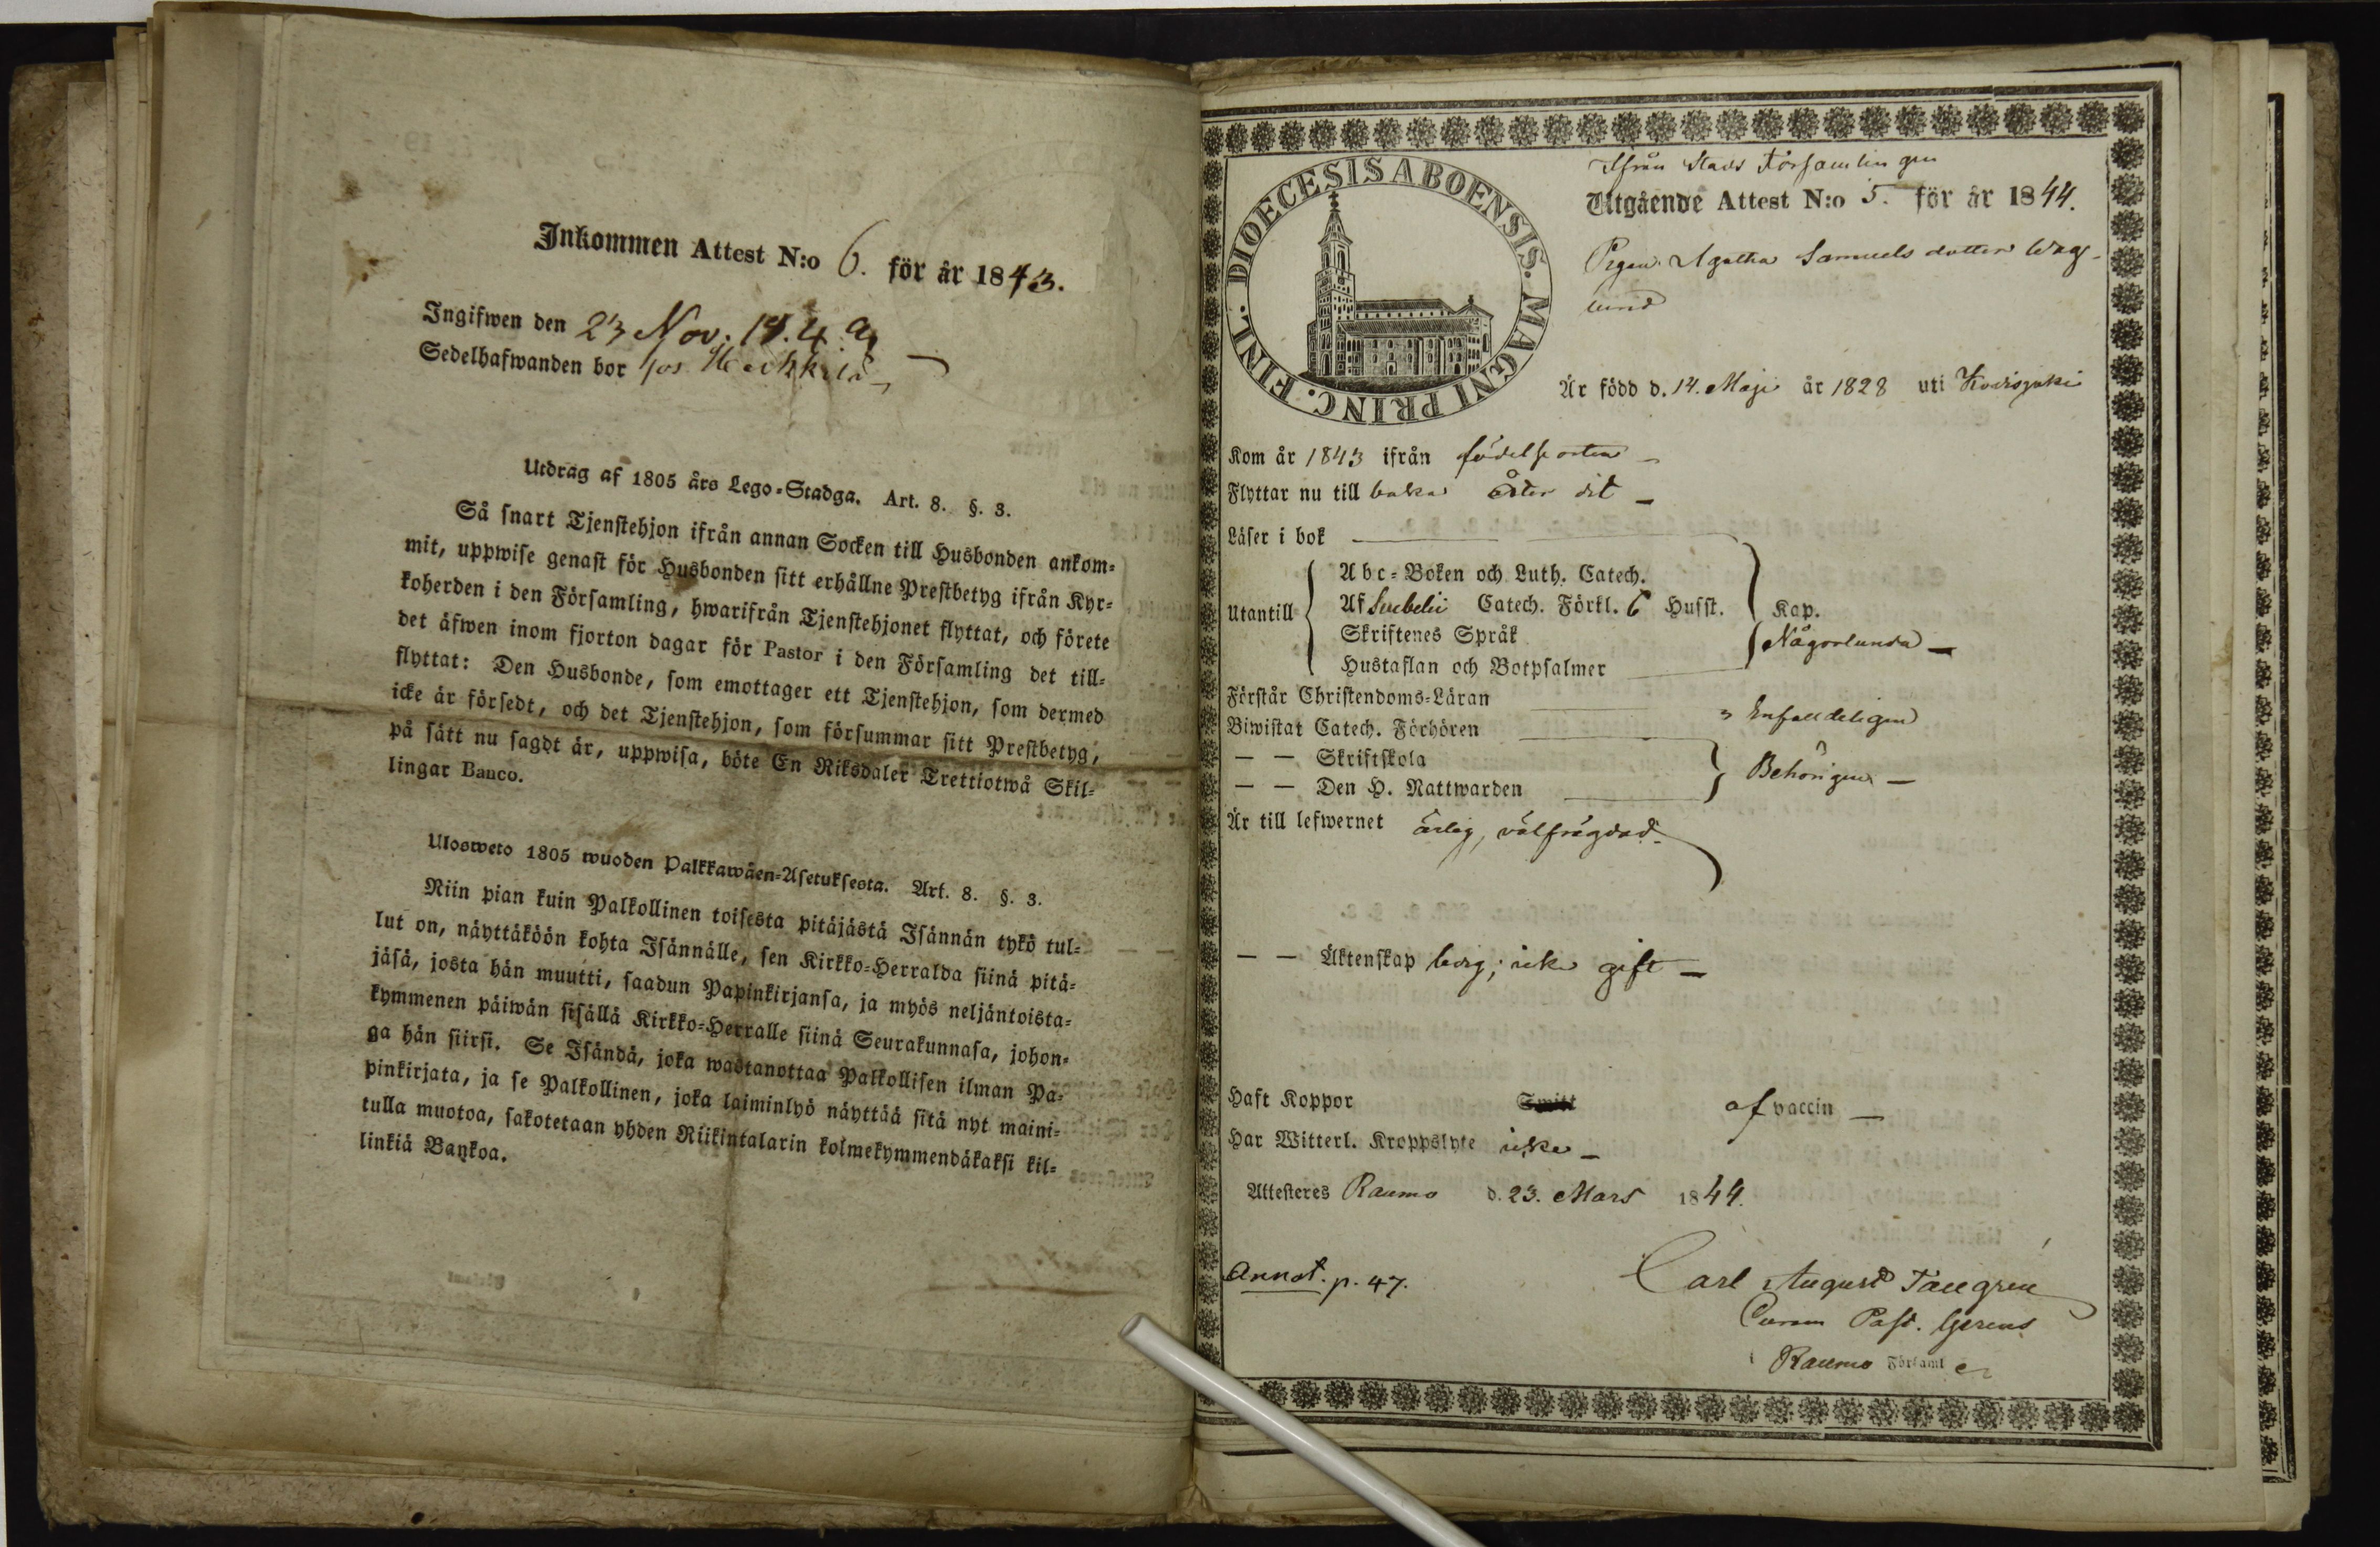 Inkommen Attest N:o 6. för år 1843.
Ingifwen den 23 Nov.
Sedelhafwanden bor hos Heikkilä
Utdrag af 1805 års Lego-Stadga. Art. 8. §. 3.
Så snart Tjenstehjon ifrån annan Socken till Husbonden ankom-
mit, uppwise genast för Husbonden sitt erhållne Prestbetyg ifrån Kyr-
koherden i den Församling, hwarifrån Tjenstehjonet flyttat, och förete
det äfwen inom fjorton dagar för Pastor i den Församling det till-
flyttat: Den Husbonde, som emottager ett Tjenstehjon, som dermed
icke är försedt, och det Tjenstehjon, som försummar sitt Prestbetyg,
på sätt nu sagdt är, uppwisa, böte En Riksdaler Trettiotwå Skil-
lingar Banco.
Ulosweto 1805 wuoden Palkkawäen-Asetuksesta. Art. 8. §. 3.
Niin pian kuin Palkollinen toisesta pitäjästä Isännän tykö tul-
lut on, näyttäköön kohta Isännälle, sen Kirkko-Herralda siinä pitä-
jäsä, josta hän muutti, saadun Papinkirjansa, ja myös neljäntoista-
kymmenen päiwän sisällä Kirkko-Herralle siinä Seurakunnasa, johon-
ga hän siirsi. Se Isändä, joka wastanottaa Palkollisen ilman Pa-
pinkirjata, ja se Palkollinen, joka laiminlyö näyttää sitä nyt maini-
tulla muotoa, sakotetaan yhden Riikintalarin kolmekymmendäkaksi kil-
linkiä Bankoa.
DIOECESIS ABOENSIS. MAGNI PRINC. FINL.
Ifrån Stads Församlingen
Utgående Attest N:o 5. för år 1844.
Pigan Agatha Samuels dotter Wag-
lund
Är född d. 14. Maji år 1828 uti Kodisjoki
Kom år 1843 ifrån födelseorten
Flyttar nu till baka åter dit
Läser i bok
Abc-Boken och Luth. Catech.
Utantill Af Svebelii Catech. Förkl. 6 Hufst. Kap.
Skriftenes Språk Någorlunda
Hustaflan och Botpsalmer
Förstår Christendoms-Läran Enfalldeligen
Biwistat Catech. Förhören
— — Skriftskola Behörigen
— — Den H. Nattwarden
Är till lefwernet ärlig, välfrägdad
— — Äktenskap ledig; icke gift
Haft Koppor af vaccin
Har Witterl. Kroppslyte icke
Attesteres Raumo d. 23. Mars 1844.
Annot. p. 47.
Carl August Taugrén
Curam Past. Gerens
i Raumo Församl